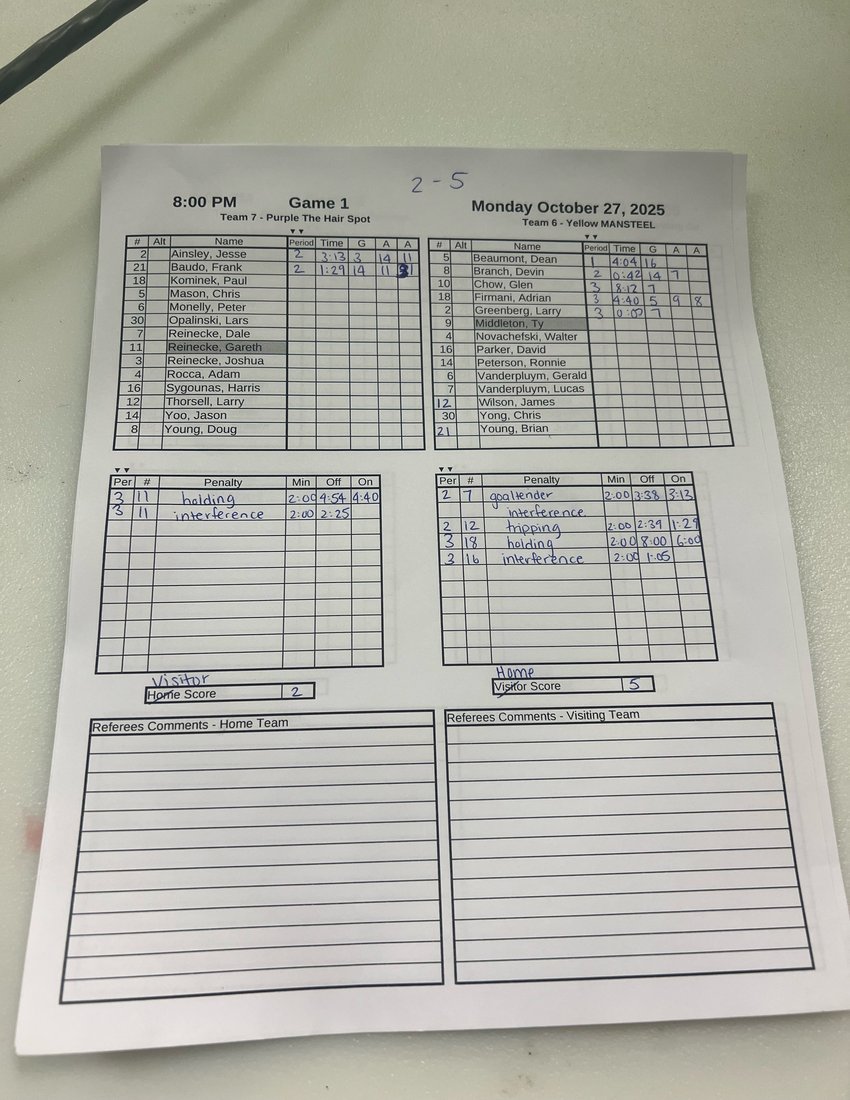 2 - 5
8:00 PM Game 1 Monday October 27, 2025
Team 7 - Purple The Hair Spot
Team 6 - Yellow MANSTEEL
# Alt Name Period Time G A A
2 Ainsley, Jesse 2 3:13 3 14 11
21 Baudo, Frank 2 1:29 14 11
18 Kominek, Paul
5 Mason, Chris
6 Monelly, Peter
30 Opalinski, Lars
7 Reinecke, Dale
11 Reinecke, Gareth
3 Reinecke, Joshua
4 Rocca, Adam
16 Sygounas, Harris
12 Thorsell, Larry
14 Yoo, Jason
8 Young, Doug
# Alt Name Period Time G A A
5 Beaumont, Dean 1 4:04 16
8 Branch, Devin 2 0:42 14 7
10 Chow, Glen 3 8:12 7
18 Firmani, Adrian 3 4:40 5 9 8
2 Greenberg, Larry 3 7
9 Middleton, Ty
4 Novachefski, Walter
16 Parker, David
14 Peterson, Ronnie
6 Vanderpluym, Gerald
7 Vanderpluym, Lucas
12 Wilson, James
30 Yong, Chris
21 Young, Brian
Per # Penalty Min Off On
3 11 holding 2:00 4:54 4:40
3 11 interference 2:00 2:25
Per # Penalty Min Off On
2 7 goaltender 2:00 3:38 3:13
interference
2 12 tripping 2:00 2:39 1:29
3 18 holding 2:00 8:00 6:00
3 16 interference 2:00 1:05
Visitor
Home Score 2
Home
Visitor Score 5
Referees Comments - Home Team
Referees Comments - Visiting Team